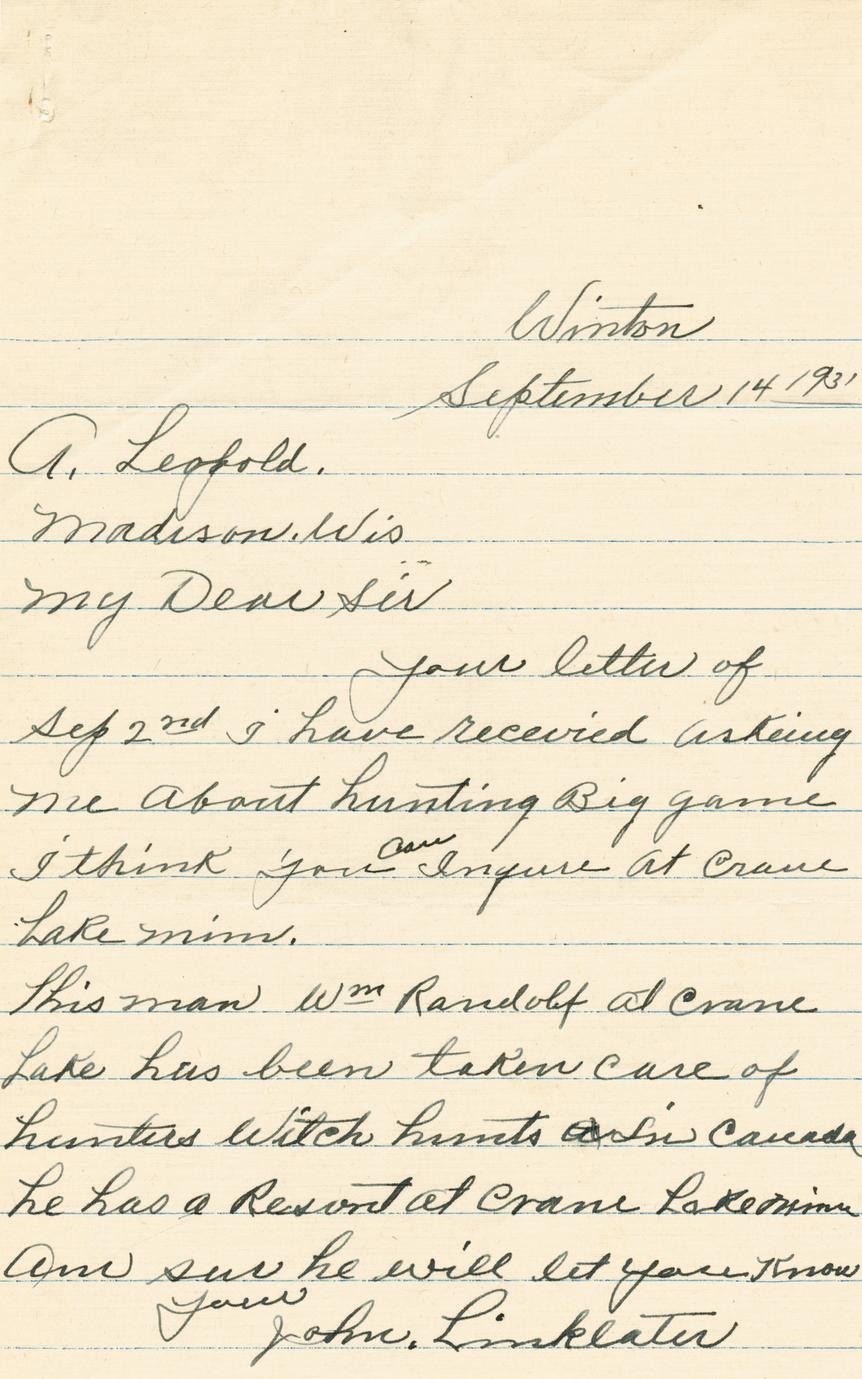 Winton
September 14 1931
A. Leopold.
Madison. Wis
My Dear Sir
Your letter of
Sep 2nd I have recevied Askeing
me About hunting Big game
I think You can Inqure At Crane
Lake minn.
This man Wm Randolf at Crane
Lake has been taken care of
hunters Witch hunts In Canada
he has a Resort at Crane Lake minn
Am sur he will let you Know
Your
John. Linklater